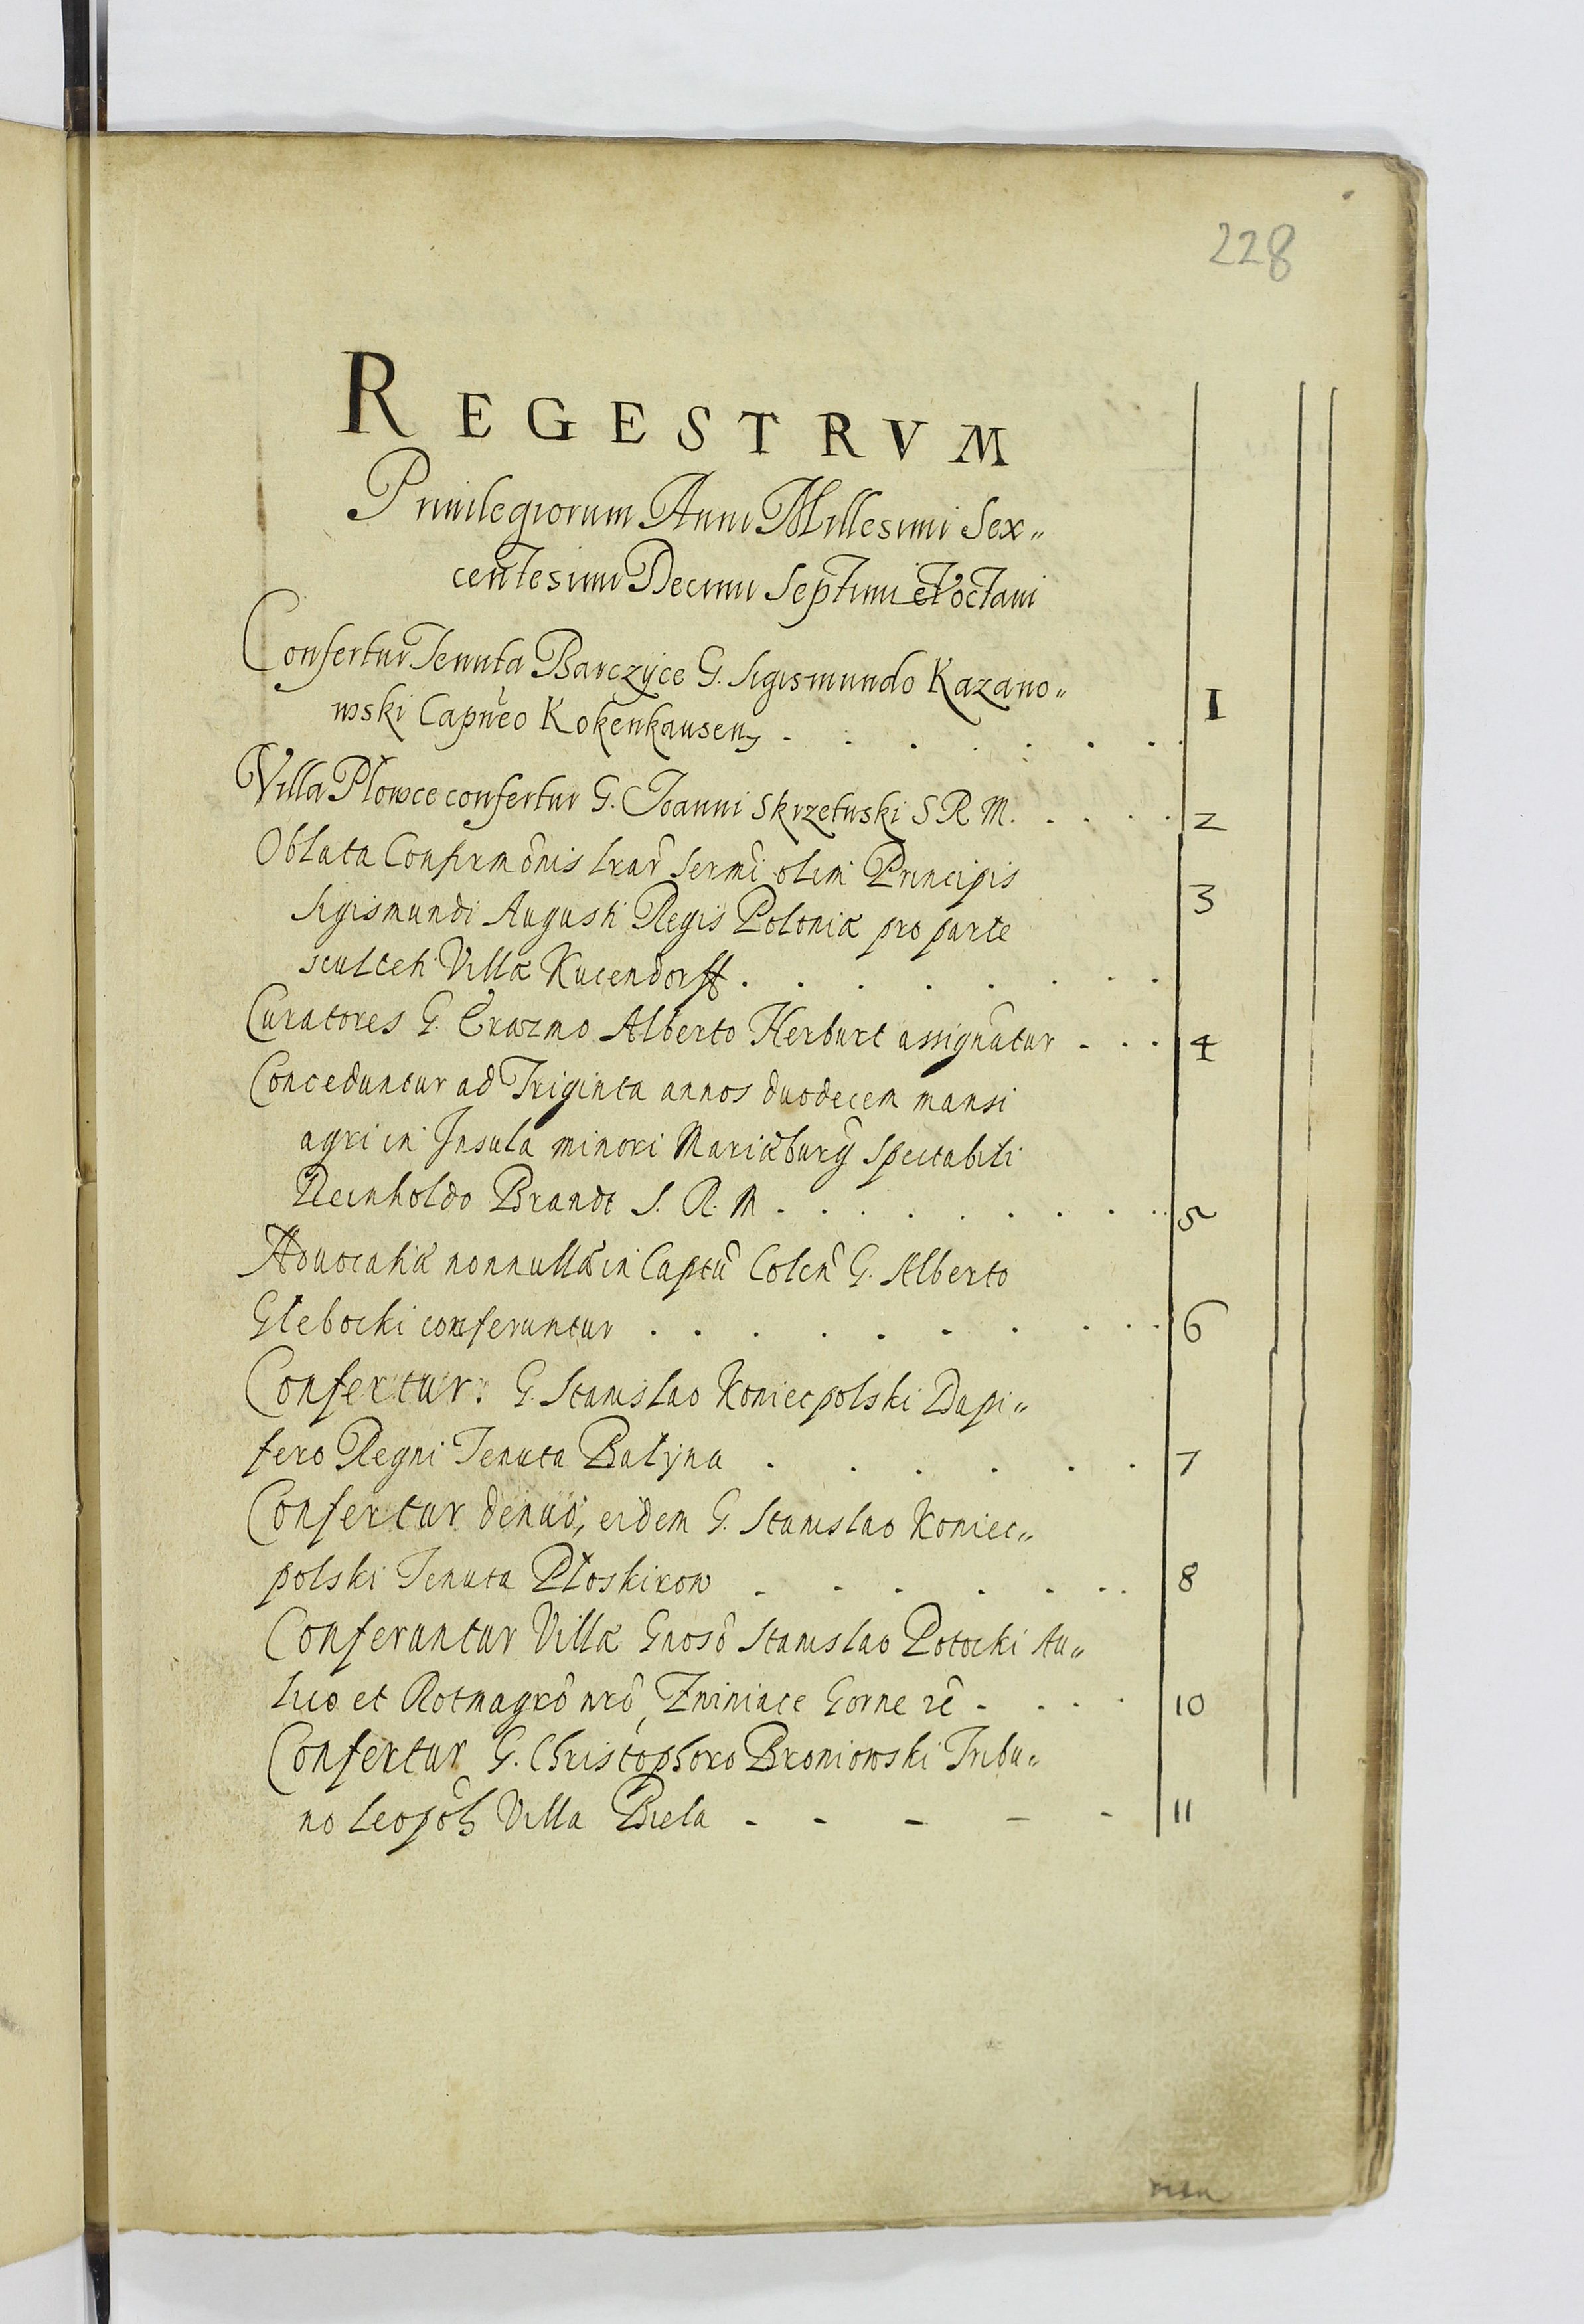 228
REGESTRVM
Priuilegiorum Anni Millesimi Sex„
centesimi Decimi Septimi et octaui
Confertur Tenuta Barczyce G. Sigismundo Kazano„
wski Capnẽo Kokenhausen̄ . . . . . . . 1
Villa Płowce confertur G. Joanni Skrzetuski S R M. . . . . 2
Oblata Confirmõnis lrar̃ Sermĩ olim Principis
Sigismundi Augusti Regis Poloniæ pro parte 3
sculteti Villæ Kucendorff . . . . . . . .
Curatores G. Erazmo Alberto Herburt assignãtur . . . 4
Conceduntur ad Triginta annos duodecem mansi
agri in Insula minori Mariæburg̃ Spectabili
Reinholdo Brandt S. R. M . . . . . . . . . 5
Aduocatiæ nonnullæ in Captũ Colen̄ G. Alberto
Glebocki conferuntur . . . . . . . . . 6
Confertur. G. Stanislao Koniecpolski Dapi„
fero Regni Tenuta Bałyna . . . . . . 7
Confertur denuo, eidem G. Stanislao Koniec„
polski Tenuta Płoskirow . . . . . . . 8
Conferuntur Villæ Gnosõ Stanislao Potocki Au„
lico et Rotmagrõ nrõ, Zniniace Gorne rẽ . . . . 10
Confertur G. Christophoro Broniowski Tribu„
no Leopol̃ Villa Biela - - - - - 11